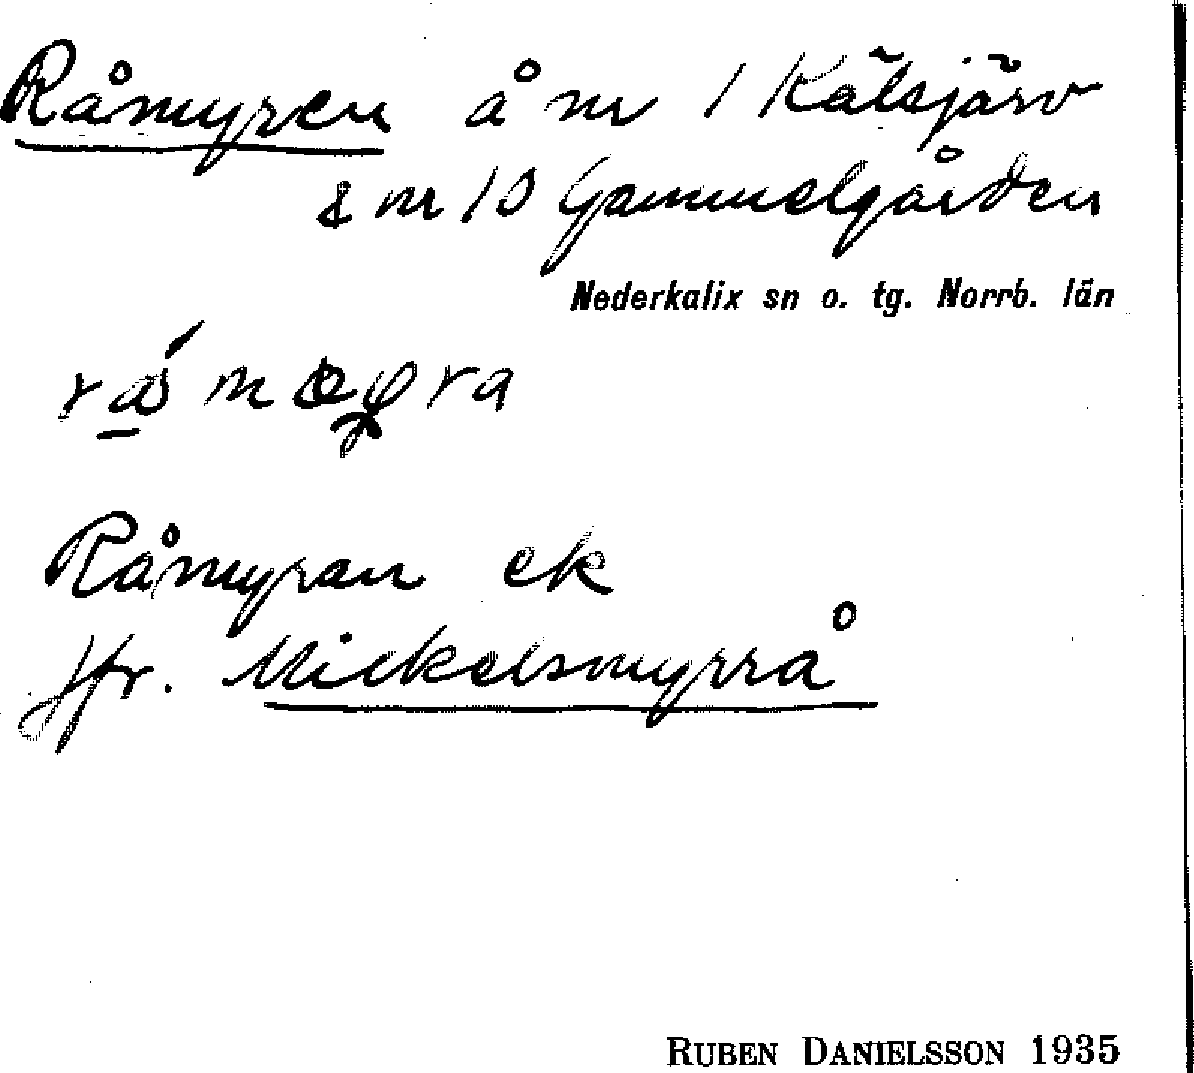 Råmyren å nr 1 Kälsjärv
& nr 10 Gammelgården
Nederkalix sn o. tg. Norrb. län
Råmyran ek
Jfr. Mickelsmyrrå
RUBEN DANIELSSON 1935